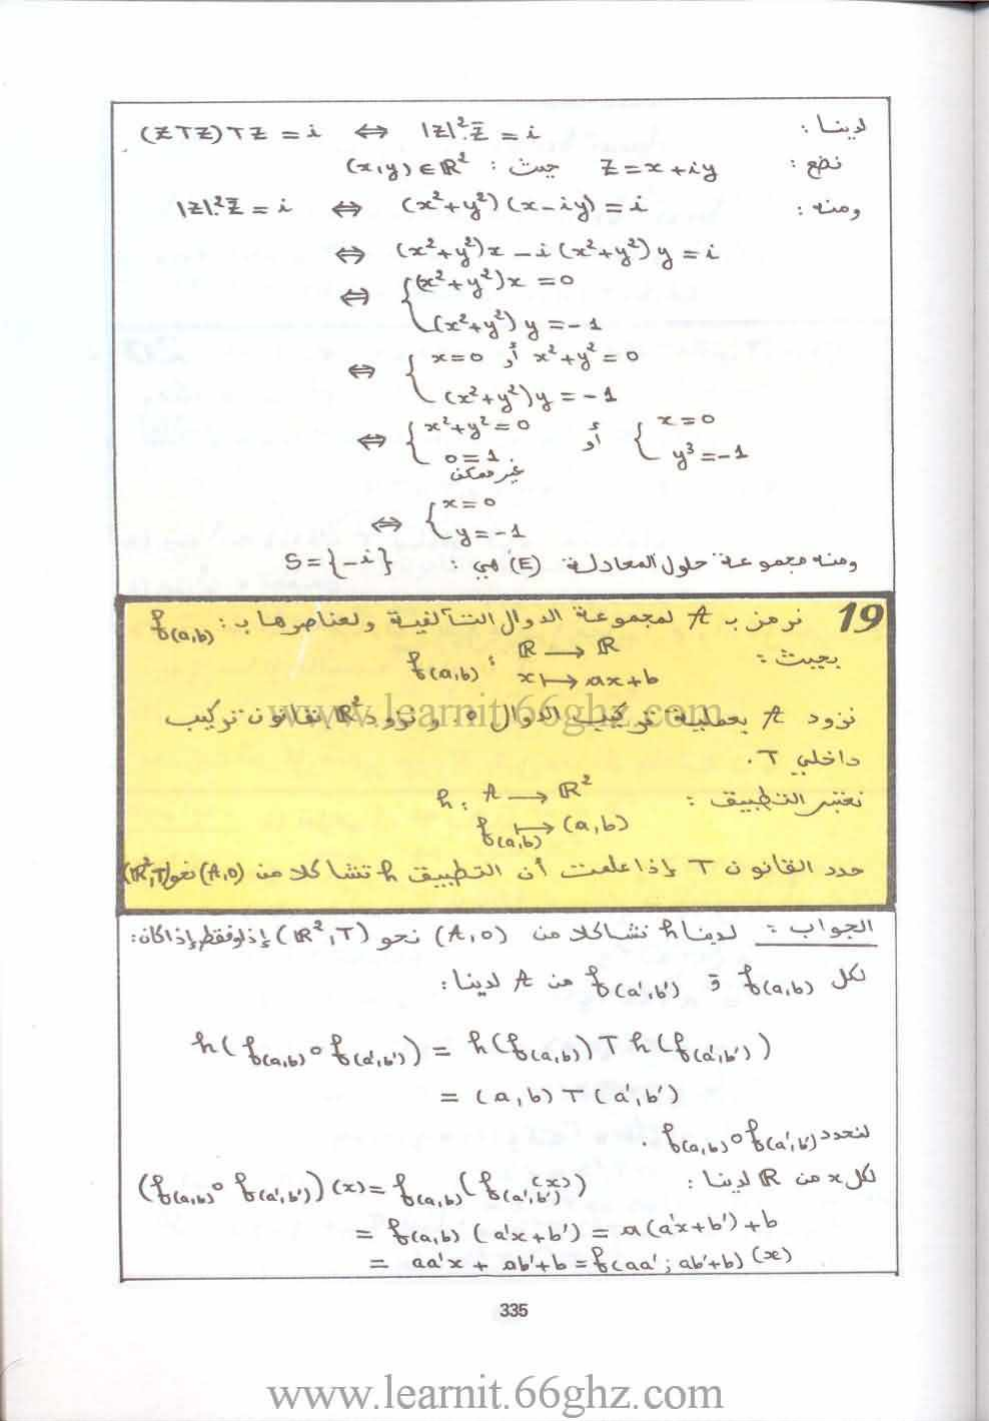 لدينا : (z T z) T z = i ⇔ |z|².z̄ = i
نضع : z = x + iy حيث : (x,y) ∈ ℝ²
ومنه : |z|².z̄ = i ⇔ (x²+y²)(x-iy) = i
⇔ (x²+y²)x - i(x²+y²)y = i
⇔ { (x²+y²)x = 0
(x²+y²)y = -1
⇔ { x=0 أو x²+y² = 0
(x²+y²)y = -1
⇔ { x²+y²=0 أو { x=0
0=1 y³=-1
غير ممكن
⇔ { x=0
y=-1
ومنه مجموعة حلول المعادلة (E) هي : S={-i}
19 نرمز بـ A لمجموعة الدوال التآلفية ولعناصرها بـ : f(a,b)
بحيث : f(a,b) : ℝ → ℝ
x ↦ ax+b
نزود A بعملية تركيب الدوال o، ونزود ℝ² بقانون تركيب
داخلي T.
نعتبر التطبيق : h : A → ℝ²
f(a,b) ↦ (a,b)
حدد القانون T إذا علمت أن التطبيق h تشاكلا من (A,o) نحو (ℝ²,T)
الجواب : لدينا h تشاكلا من (A,o) نحو (ℝ²,T) إذا وفقط إذا كان:
لكل f(a,b) و f(a',b') من A لدينا :
h(f(a,b) o f(a',b')) = h(f(a,b)) T h(f(a',b'))
= (a,b) T (a',b')
لنحدد f(a,b) o f(a',b') .
لكل x من ℝ لدينا : (f(a,b) o f(a',b'))(x) = f(a,b)(f(a',b')(x))
= f(a,b)(a'x+b') = a(a'x+b')+b
= aa'x + ab'+b = f(aa' ; ab'+b)(x)
335
www.learnit.66ghz.com
www.learnit.66ghz.com